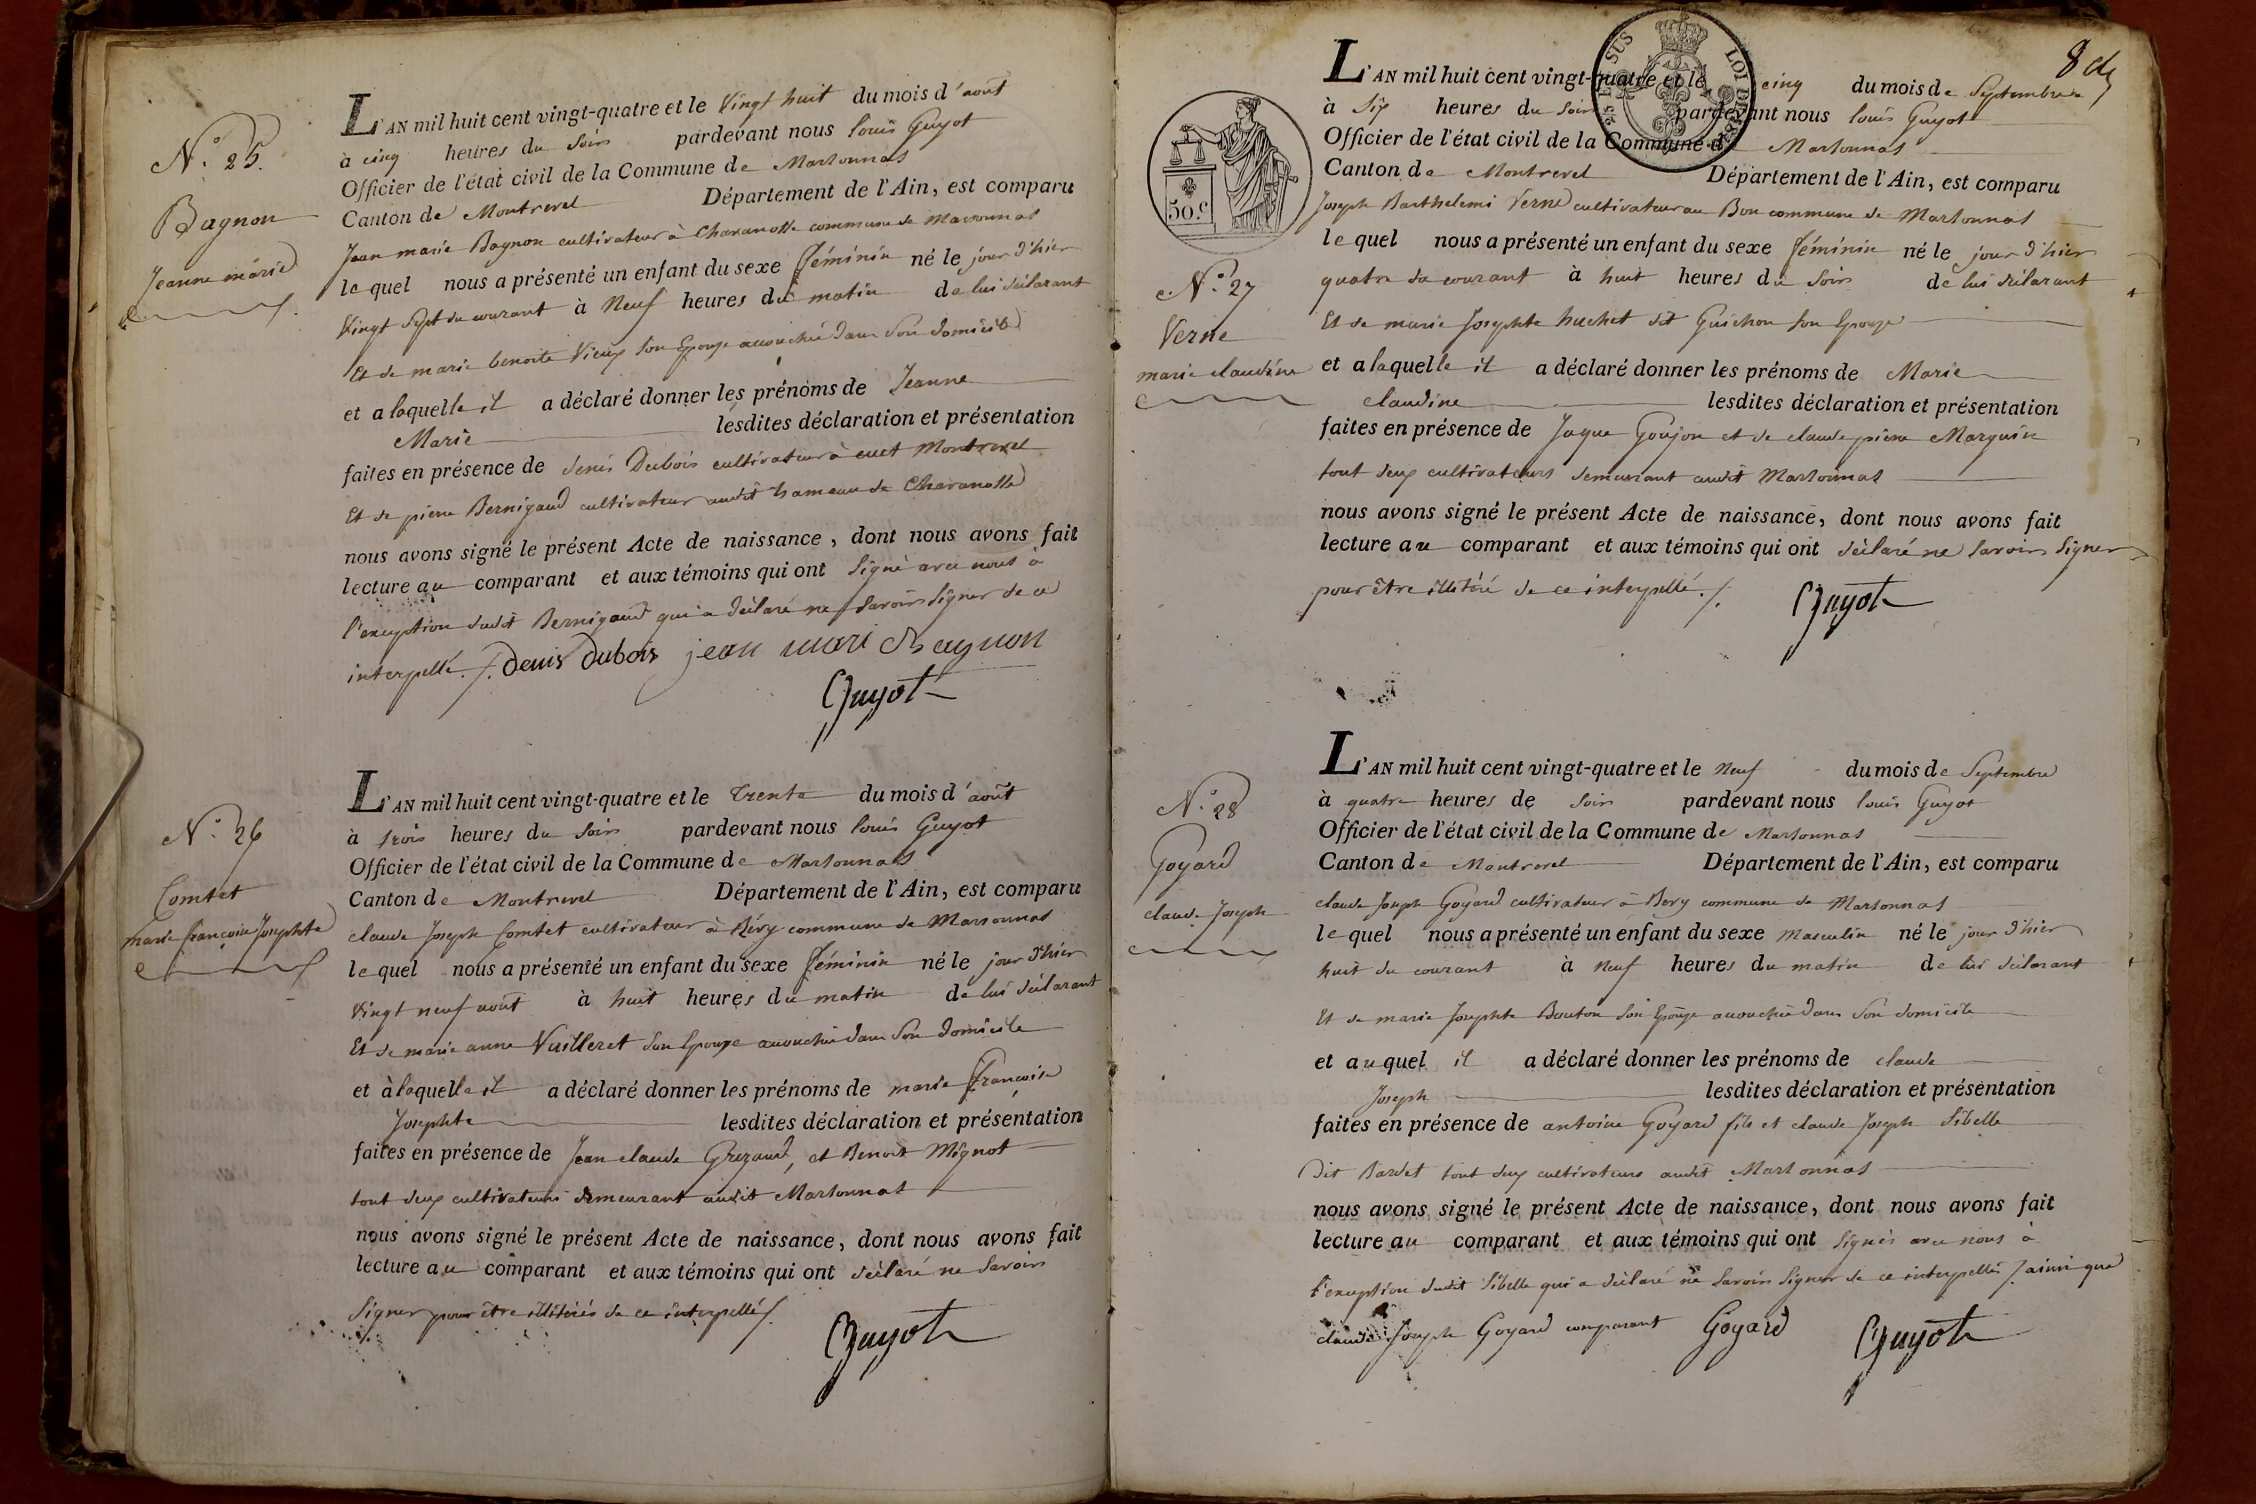 N.° 25.
Bagnon
Jeanne marie
L'AN mil huit cent vingt-quatre et le Vingt huit du mois d'aout
à cinq heures du Soir pardevant nous louis Guyot
Officier de l'état civil de la Commune de Marsonnas
Canton de Montrevel Département de l'Ain, est comparu
Jean marie Bagnon cultivateur à Charanolle commune de Marsonnas
le quel nous a présenté un enfant du sexe féminin né le jour d'hier
Vingt Sept du courant à Neuf heures du matin de lui déclarant
Et de marie benoite Vieux Son Epouse accouchée dans Son domicile
et a laquelle il a déclaré donner les prénoms de Jeanne
Marie lesdites déclaration et présentation
faites en présence de denis Dubois cultivateur à cuet Montrevel
Et de pierre Bernigaud cultivateur audit hameau de Charanolle
nous avons signé le présent Acte de naissance, dont nous avons fait
lecture au comparant et aux témoins qui ont Signé avec nous à
l'exception dudit Bernigaud qui a déclaré ne Savoir Signer de ce
interpellé. /. denis Dubois jean mari Bagnon
Guyot
N.° 26
Comtet
marie françoise Josephte
L'AN mil huit cent vingt-quatre et le Trente du mois d'août
à trois heures du Soir pardevant nous louis Guyot
Officier de l'état civil de la Commune de Marsonnas
Canton de Montrevel Département de l'Ain, est comparu
claude Joseph Comtet cultivateur à Bévy commune de Marsonnas
le quel nous a présenté un enfant du sexe féminin né le jour d'hier
Vingt neuf août à huit heures du matin de lui déclarant
Et de marie anne Vuilleret Son Epouse accouchée dans Son domicile
et à laquelle il a déclaré donner les prénoms de marie françoise
Josephte lesdites déclaration et présentation
faites en présence de Jean claude Grezaud, et Benoit Mignot
tout deux cultivateurs demeurant audit Marsonnas
nous avons signé le présent Acte de naissance, dont nous avons fait
lecture au comparant et aux témoins qui ont déclaré ne Savoir
Signer pour être illitérés de ce interpellé /.
Guyot
8
50.c
N.° 27
Verne
marie claudine
L'AN mil huit cent vingt-quatre et le cinq du mois de Septembre
à Six heures du Soir pardevant nous louis Guyot
Officier de l'état civil de la Commune d Marsonnas
Canton de Montrevel Département de l'Ain, est comparu
Joseph Barthelemi Verne cultivateur au Bou commune de Marsonnas
le quel nous a présenté un enfant du sexe féminin né le jour d'hier
quatre du courant à huit heures du Soir de lui déclarant
Et de marie Josephte huchet dit Guichon Son Epouse
et a laquelle il a déclaré donner les prénoms de Marie
claudine lesdites déclaration et présentation
faites en présence de Jaque Goujon et de claude pierre Marguin
tout deux cultivateurs demeurant audit Marsonnas
nous avons signé le présent Acte de naissance, dont nous avons fait
lecture au comparant et aux témoins qui ont déclaré ne Savoir Signer
pour être illitéré de ce interpellé. /.
Guyot
N.° 28
Goyard
claude Joseph
L'AN mil huit cent vingt-quatre et le Neuf du mois de Septembre
à quatre heures de Soir pardevant nous louis Guyot
Officier de l'état civil de la Commune de Marsonnas
Canton de Montrevel Département de l'Ain, est comparu
claude Joseph Goyard cultivateur à Bevy commune de Marsonnas
le quel nous a présenté un enfant du sexe masculin né le jour d'hier
huit du courant à Neuf heures du matin de lui déclarant
Et de marie Josephte Bouton Son Epouse accouchée dans Son domicile
et auquel il a déclaré donner les prénoms de claude
Joseph lesdites déclaration et présentation
faites en présence de antoine Goyard fils et claude Joseph Sibelle
Dit Bardet tout deux cultivateurs audit Marsonnas
nous avons signé le présent Acte de naissance, dont nous avons fait
lecture au comparant et aux témoins qui ont Signés avec nous à
l'exception dudit Sibelle qui a déclaré ne Savoir Signer de ce interpellés /. ainsi que
claude Joseph Goyard comparant Goyard Guyot